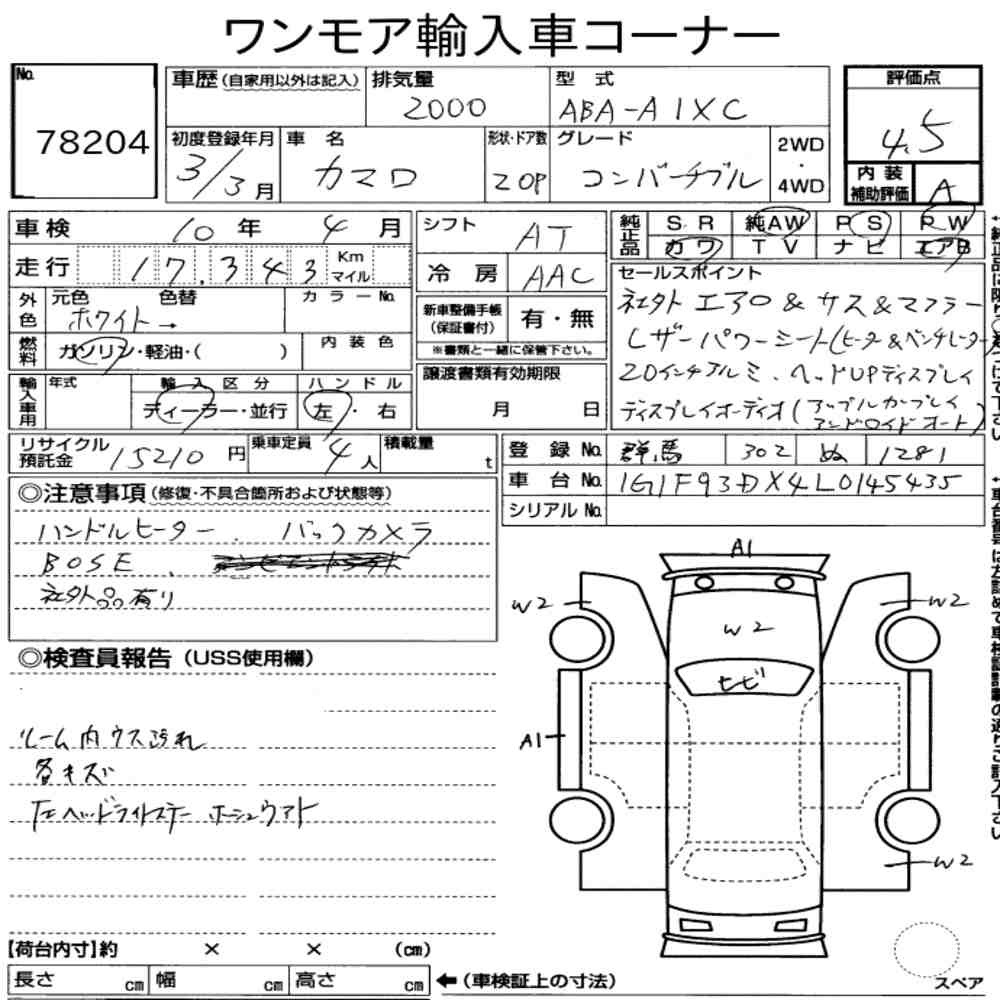 ワンモア輸入車コーナー
No.
78204
車歴(自家用以外は記入)
排気量
2000
型式
ABA-A1XC
評価点
4.5
初度登録年月
3/3月
車名
カマロ
形状・ドア数
2 OP
グレード
コンバーチブル
2WD
・
4WD
内装
補助評価
A
車検 10年 4月
走行 17,343 Km マイル
シフト
AT
冷房
AAC
純正品
SR 純AW PS PW
カワ TV ナビ エアB
外色
元色 色替
ホワイト→
カラーNo.
新車整備手帳
(保証書付)
有・無
※書類と一緒に保管下さい。
燃料
ガソリン・軽油・( )
内装色
セールスポイント
社外エアロ&サス&マフラー
レザーパワーシート(ヒーター&ベンチレーター)
20インチアルミ、ヘッドUPディスプレイ
ディスプレイオーディオ(アップルカープレイ
アンドロイドオート)
輸入車用
年式
輸入区分
ディーラー・並行
ハンドル
左・右
譲渡書類有効期限
月 日
リサイクル
預託金
15210円
乗車定員
4人
積載量
t
登録No.
群馬 302 ぬ 1281
車台No.
1G1F93DX4L0145435
シリアルNo.
◎注意事項(修復・不具合箇所および状態等)
ハンドルヒーター、バックカメラ
BOSE、
社外品有り
◎検査員報告(USS使用欄)
ルーム内ウス汚れ
各キズ
左ヘッドライトステーホシュウアト
A1
W2
W2
W2
ヒビ
A1
W2
スペア
【荷台内寸】約 × × (cm)
長さ cm 幅 cm 高さ cm
←(車検証上の寸法)